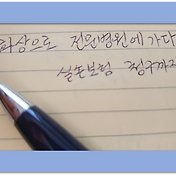 화상으로 전원병원에 가다
실손보험 청구까지